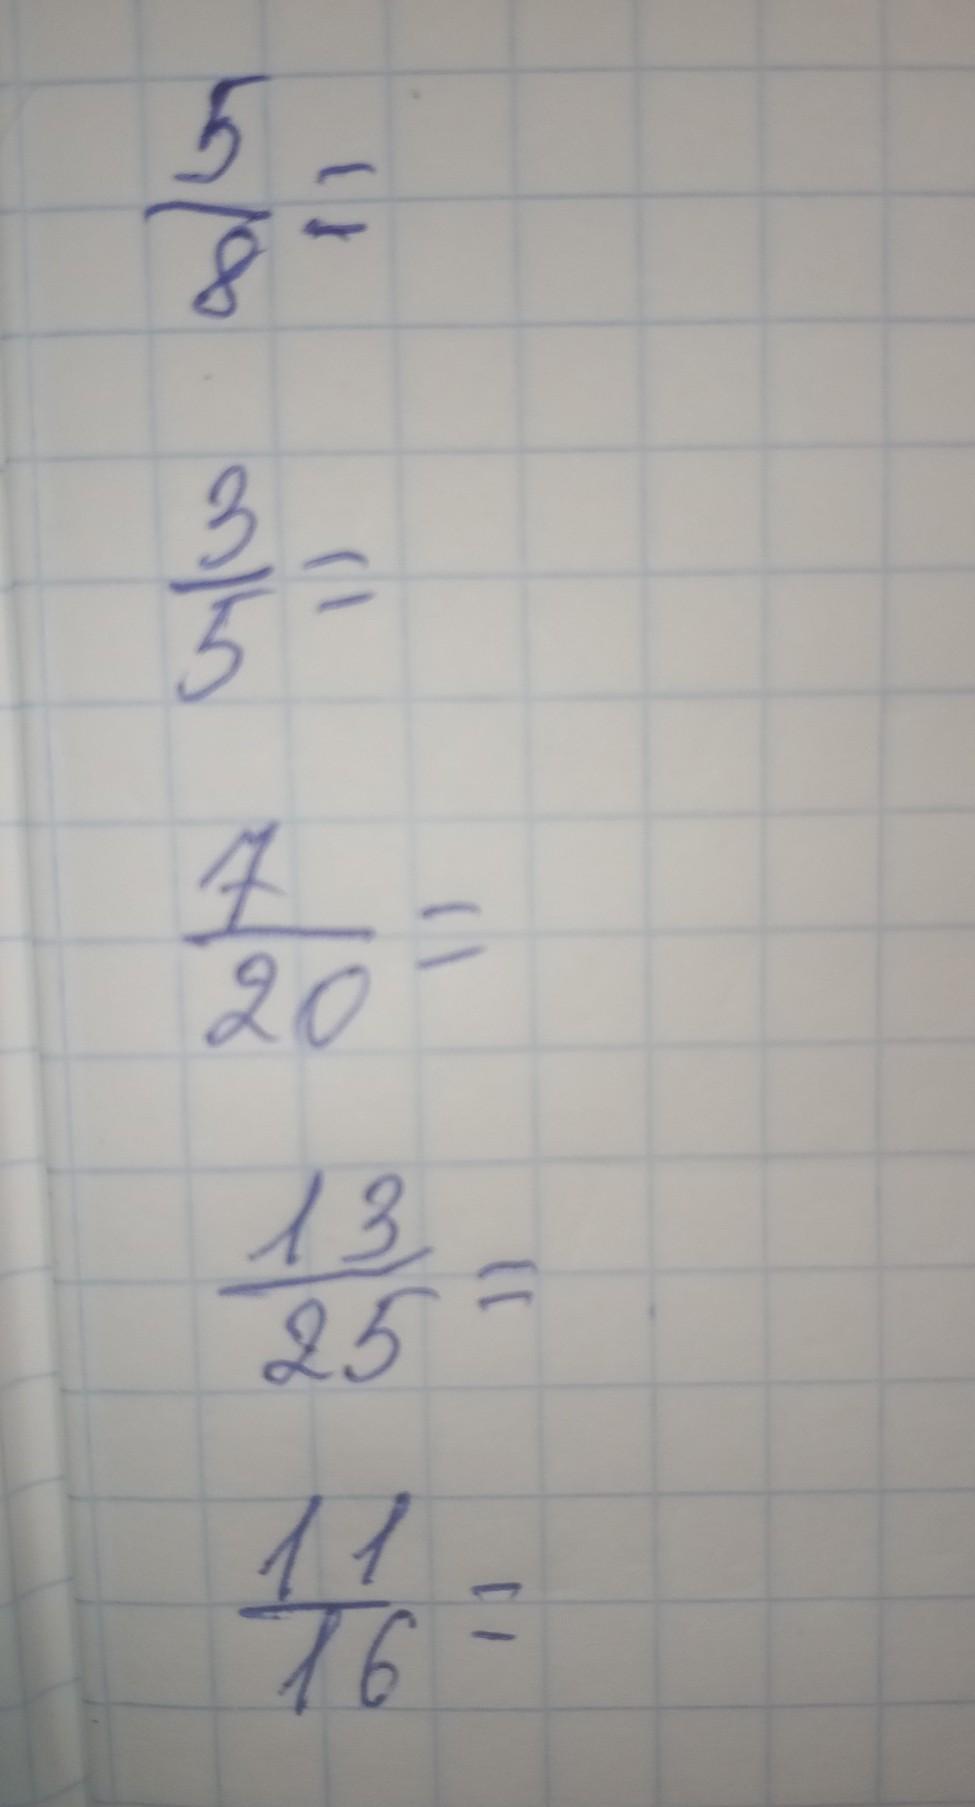 5/8 =
3/5 =
7/20 =
13/25 =
11/16 =